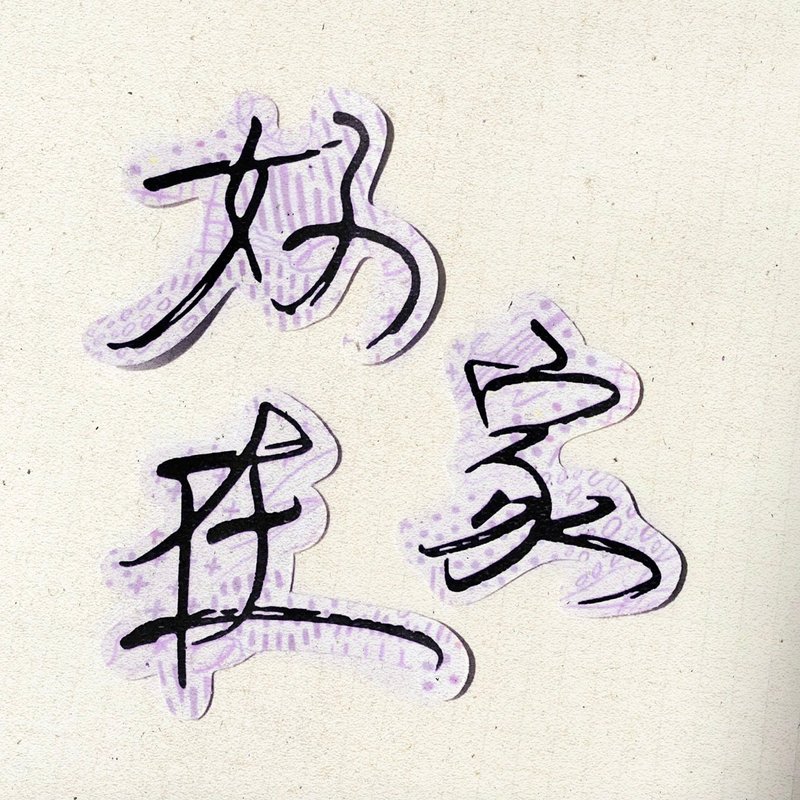 好
在家